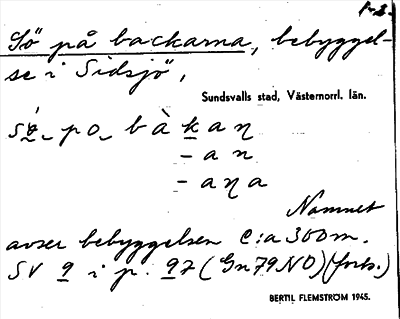 1-2.
Sö på backarna, bebyggel-
se i Sidsjö,
Sundsvalls stad, Västernorrl. län.
po bàkaƞ
- an
- aƞa
Namnet
avser bebyggelsen c:a 300 m.
SV 9 i p. 97 (Gn 79 NO) (forts.)
BERTIL FLEMSTRÖM 1945.